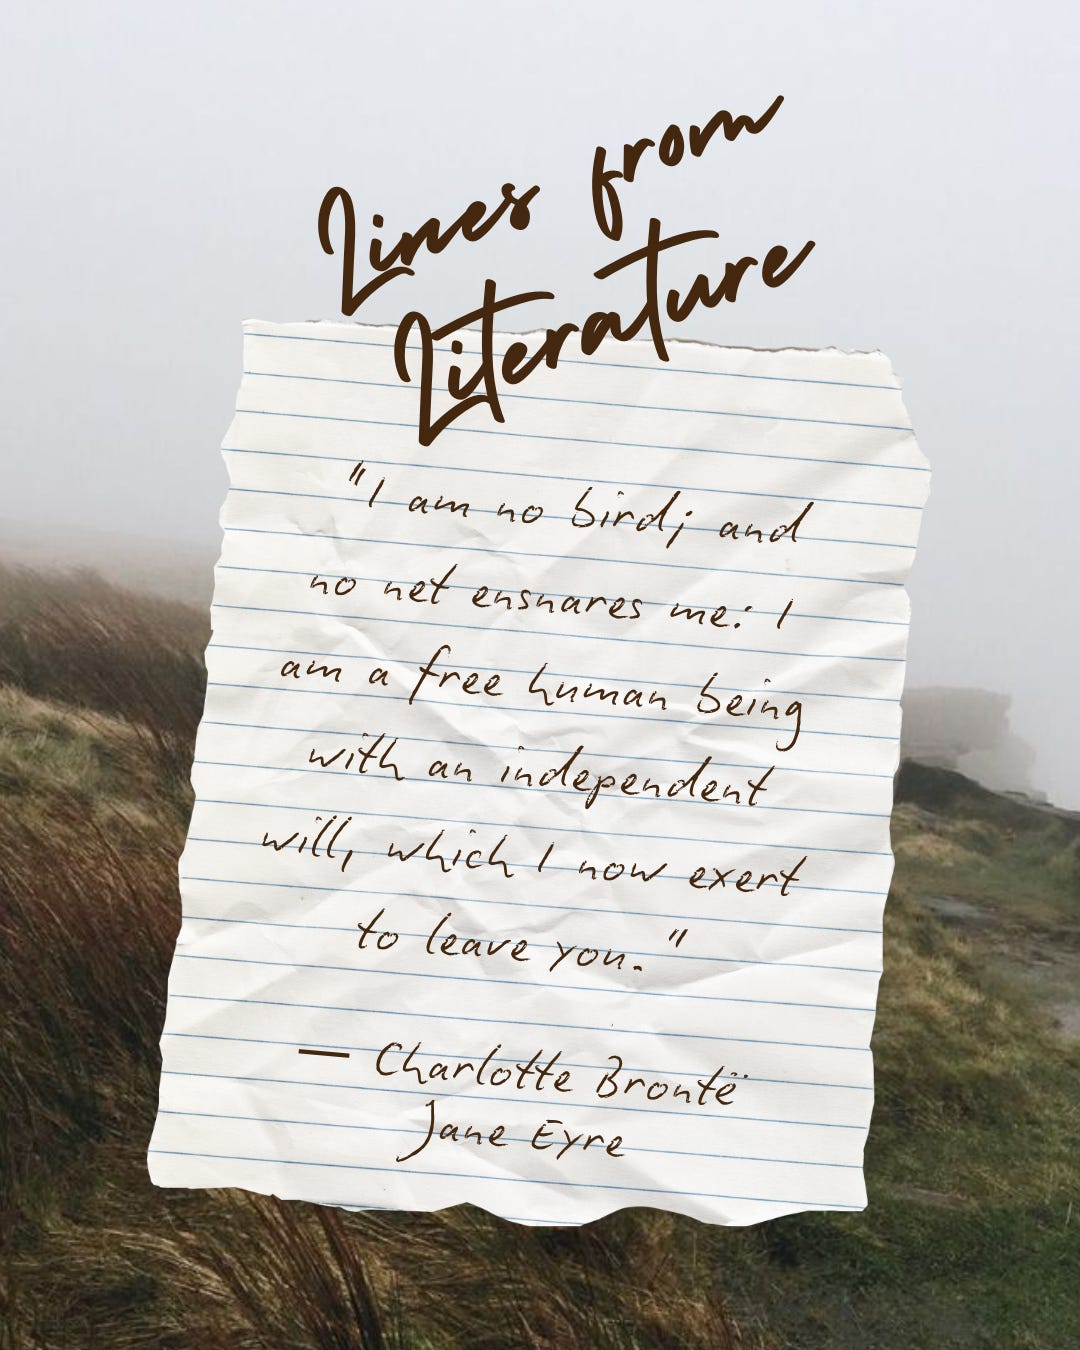 Lines from
Literature
"I am no bird; and
no net ensnares me: I
am a free human being
with an independent
will, which I now exert
to leave you."
— Charlotte Brontë
Jane Eyre